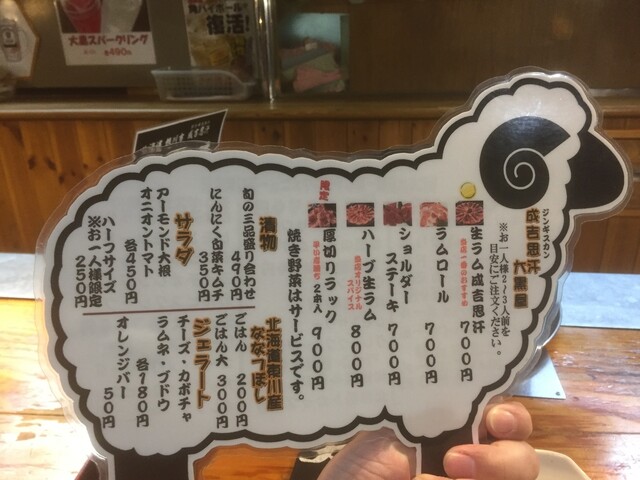 大黒スパークリング
各490円
角ハイボールが
復活!
ジンギスカン
成吉思汗
大黒屋
※お一人様2〜3人前を
目安にご注文ください。
生ラム成吉思汗 700円
ラムロール 700円
ショルダー
ステーキ 700円
ハーブ生ラム 800円
当店オリジナル
スパイス
限定
厚切りラック 900円
2本入
焼き野菜はサービスです。
漬物
旬の三品盛り合わせ
490円
にんにく白菜キムチ
350円
サラダ
アーモンド大根
オニオントマト
各450円
ハーフサイズ
※お一人様限定
250円
北海道東川産
ななつぼし
ごはん 200円
ごはん大 300円
ジェラート
チーズ・カボチャ
ラムネ・ブドウ
各180円
オレンジバー
50円